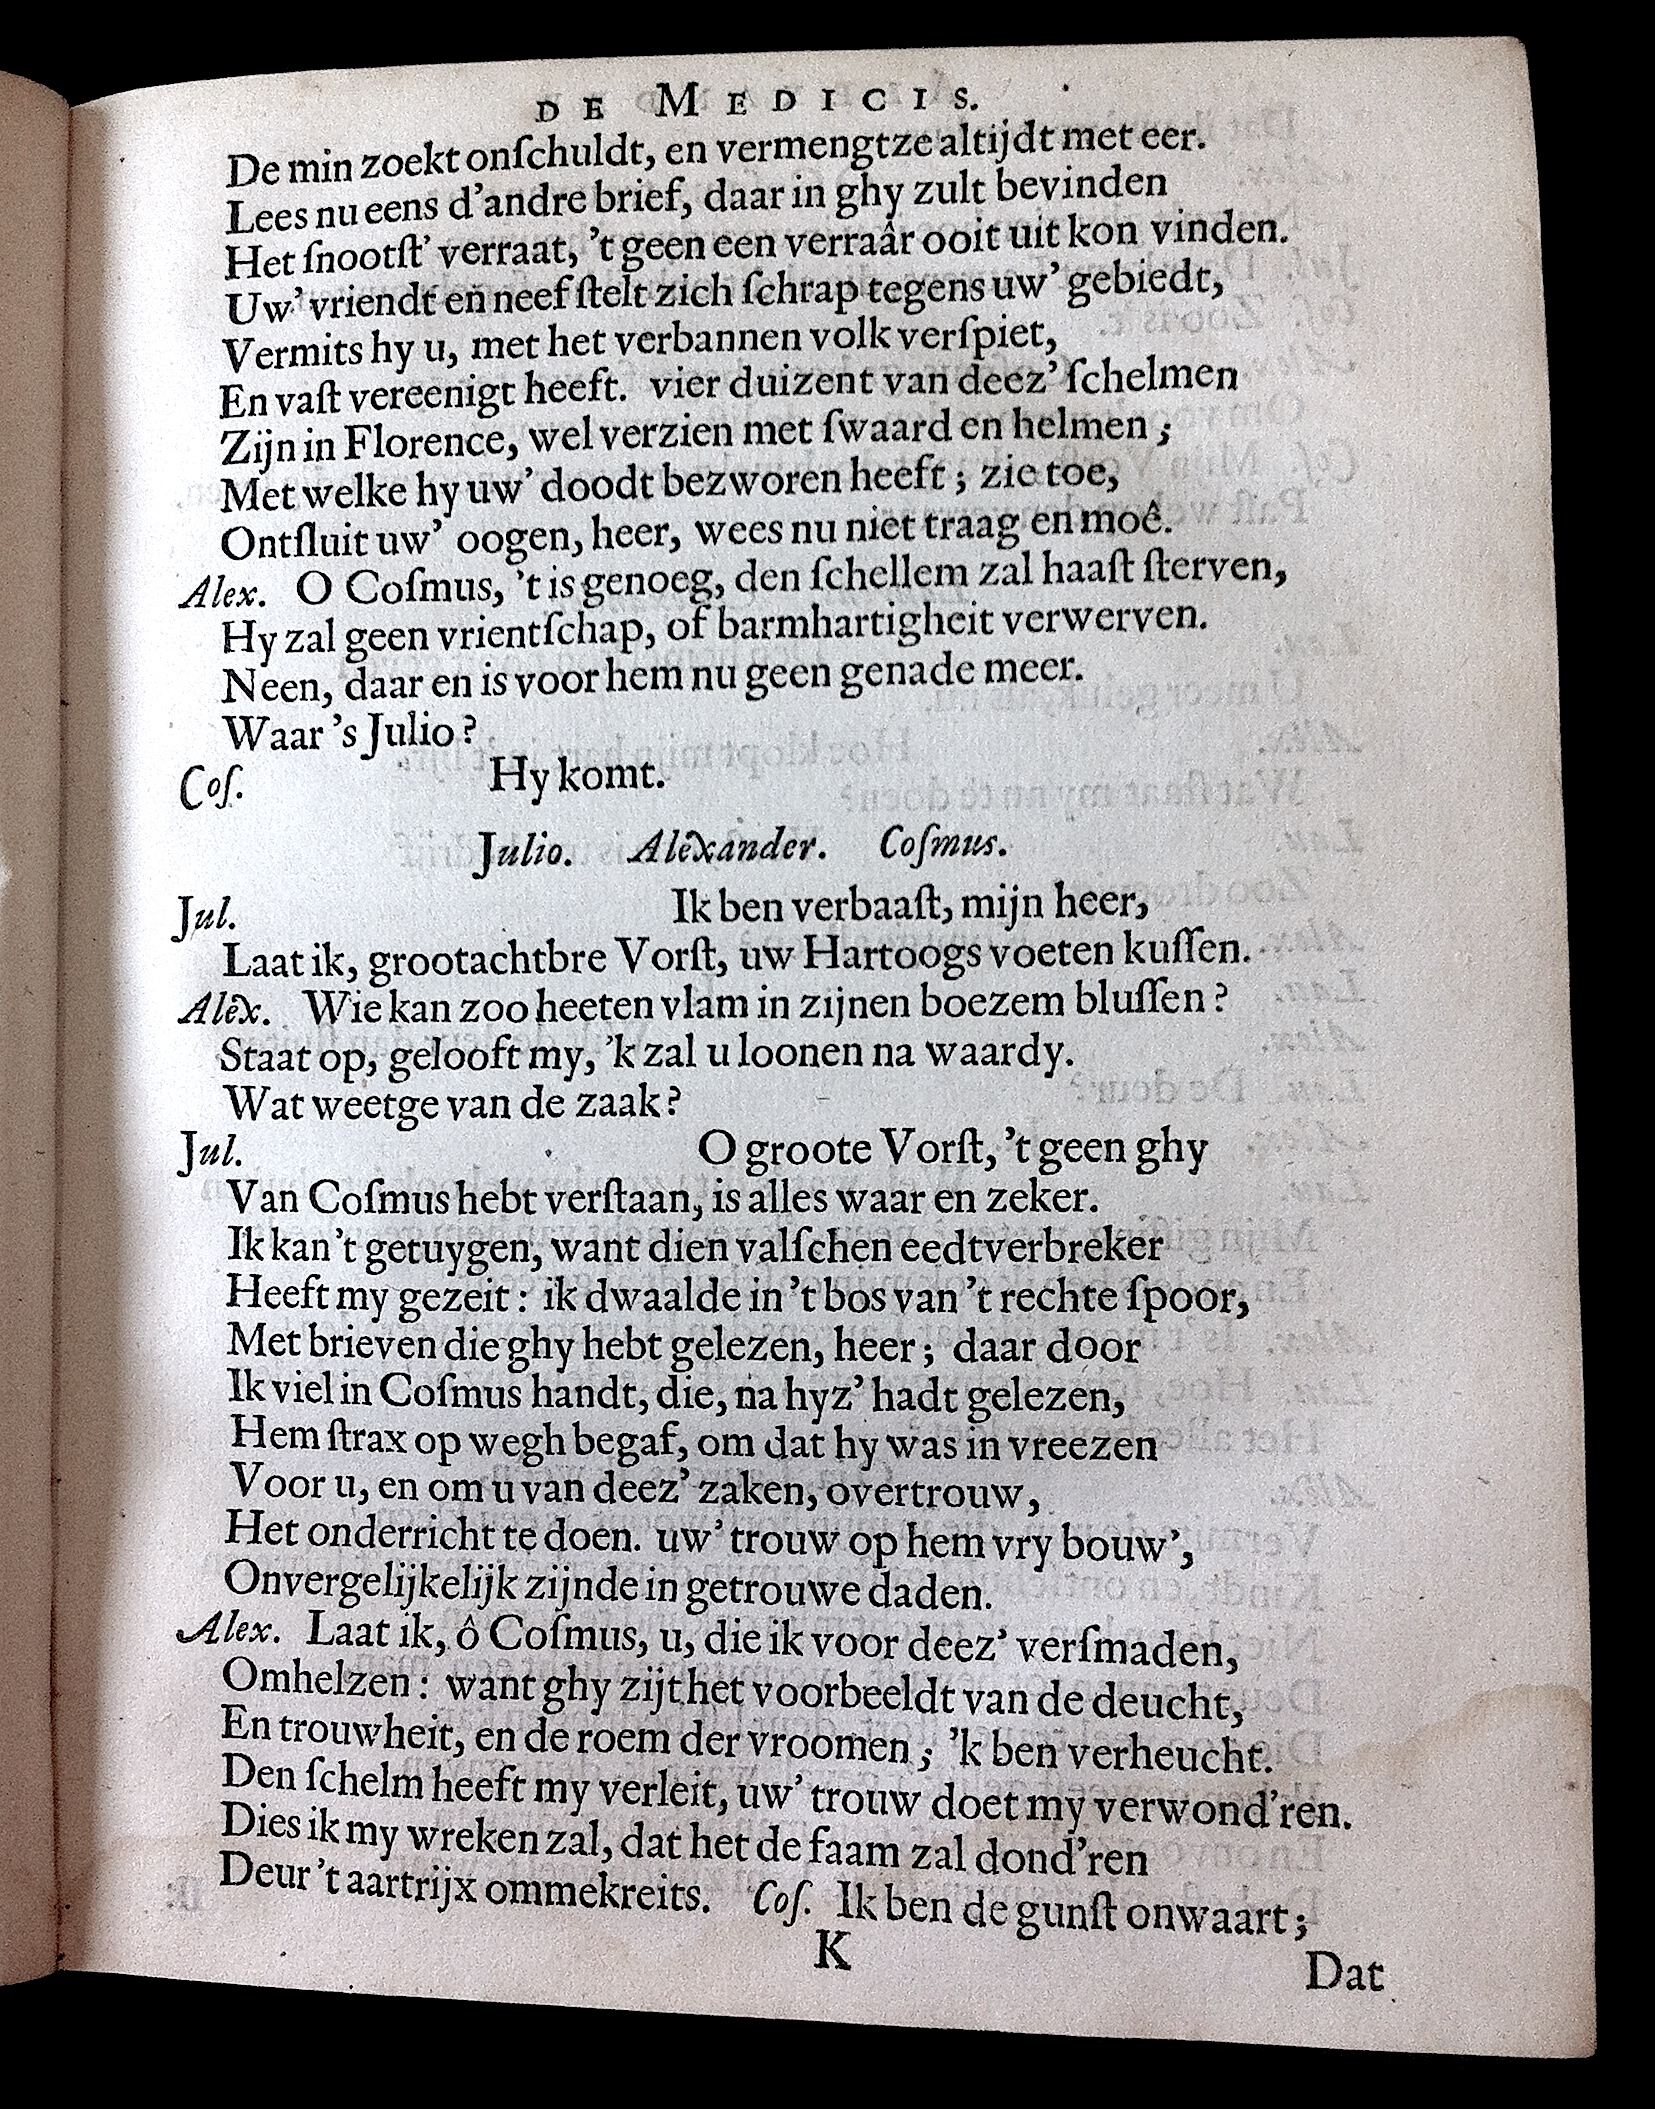 DE MEDICIS.
De min zoekt onſchuldt, en vermengtze altijdt met eer.
Lees nu eens d'andre brief, daar in ghy zult bevinden
Het ſnootſt' verraat, 't geen een verraâr ooit uit kon vinden.
Uw' vriendt en neef ſtelt zich ſchrap tegens uw' gebiedt,
Vermits hy u, met het verbannen volk verſpiet,
En vaſt vereenigt heeft. vier duizent van deez' ſchelmen
Zijn in Florence, wel verzien met ſwaard en helmen;
Met welke hy uw' doodt bezworen heeft; zie toe,
Ontſluit uw' oogen, heer, wees nu niet traag en moê.
Alex. O Coſmus, 't is genoeg, den ſchellem zal haaſt ſterven,
Hy zal geen vrientſchap, of barmhartigheit verwerven.
Neen, daar en is voor hem nu geen genade meer.
Waar 's Julio?
Coſ. Hy komt.
Julio. Alexander. Coſmus.
Jul. Ik ben verbaaſt, mijn heer,
Laat ik, grootachtbre Vorſt, uw Hartoogs voeten kuſſen.
Alex. Wie kan zoo heeten vlam in zijnen boezem bluſſen?
Staat op, gelooft my, 'k zal u loonen na waardy.
Wat weetge van de zaak?
Jul. O groote Vorſt, 't geen ghy
Van Coſmus hebt verſtaan, is alles waar en zeker.
Ik kan 't getuygen, want dien valſchen eedtverbreker
Heeft my gezeit: ik dwaalde in 't bos van 't rechte ſpoor,
Met brieven die ghy hebt gelezen, heer; daar door
Ik viel in Coſmus handt, die, na hyz' hadt gelezen,
Hem ſtrax op wegh begaf, om dat hy was in vreezen
Voor u, en om u van deez' zaken, overtrouw,
Het onderricht te doen. uw' trouw op hem vry bouw',
Onvergelijkelijk zijnde in getrouwe daden.
Alex. Laat ik, ô Coſmus, u, die ik voor deez' verſmaden,
Omhelzen: want ghy zijt het voorbeeldt van de deucht,
En trouwheit, en de roem der vroomen; 'k ben verheucht.
Den ſchelm heeft my verleit, uw' trouw doet my verwond'ren.
Dies ik my wreken zal, dat het de faam zal dond'ren
Deur 't aartrijx ommekreits. Coſ. Ik ben de gunſt onwaart;
K
Dat